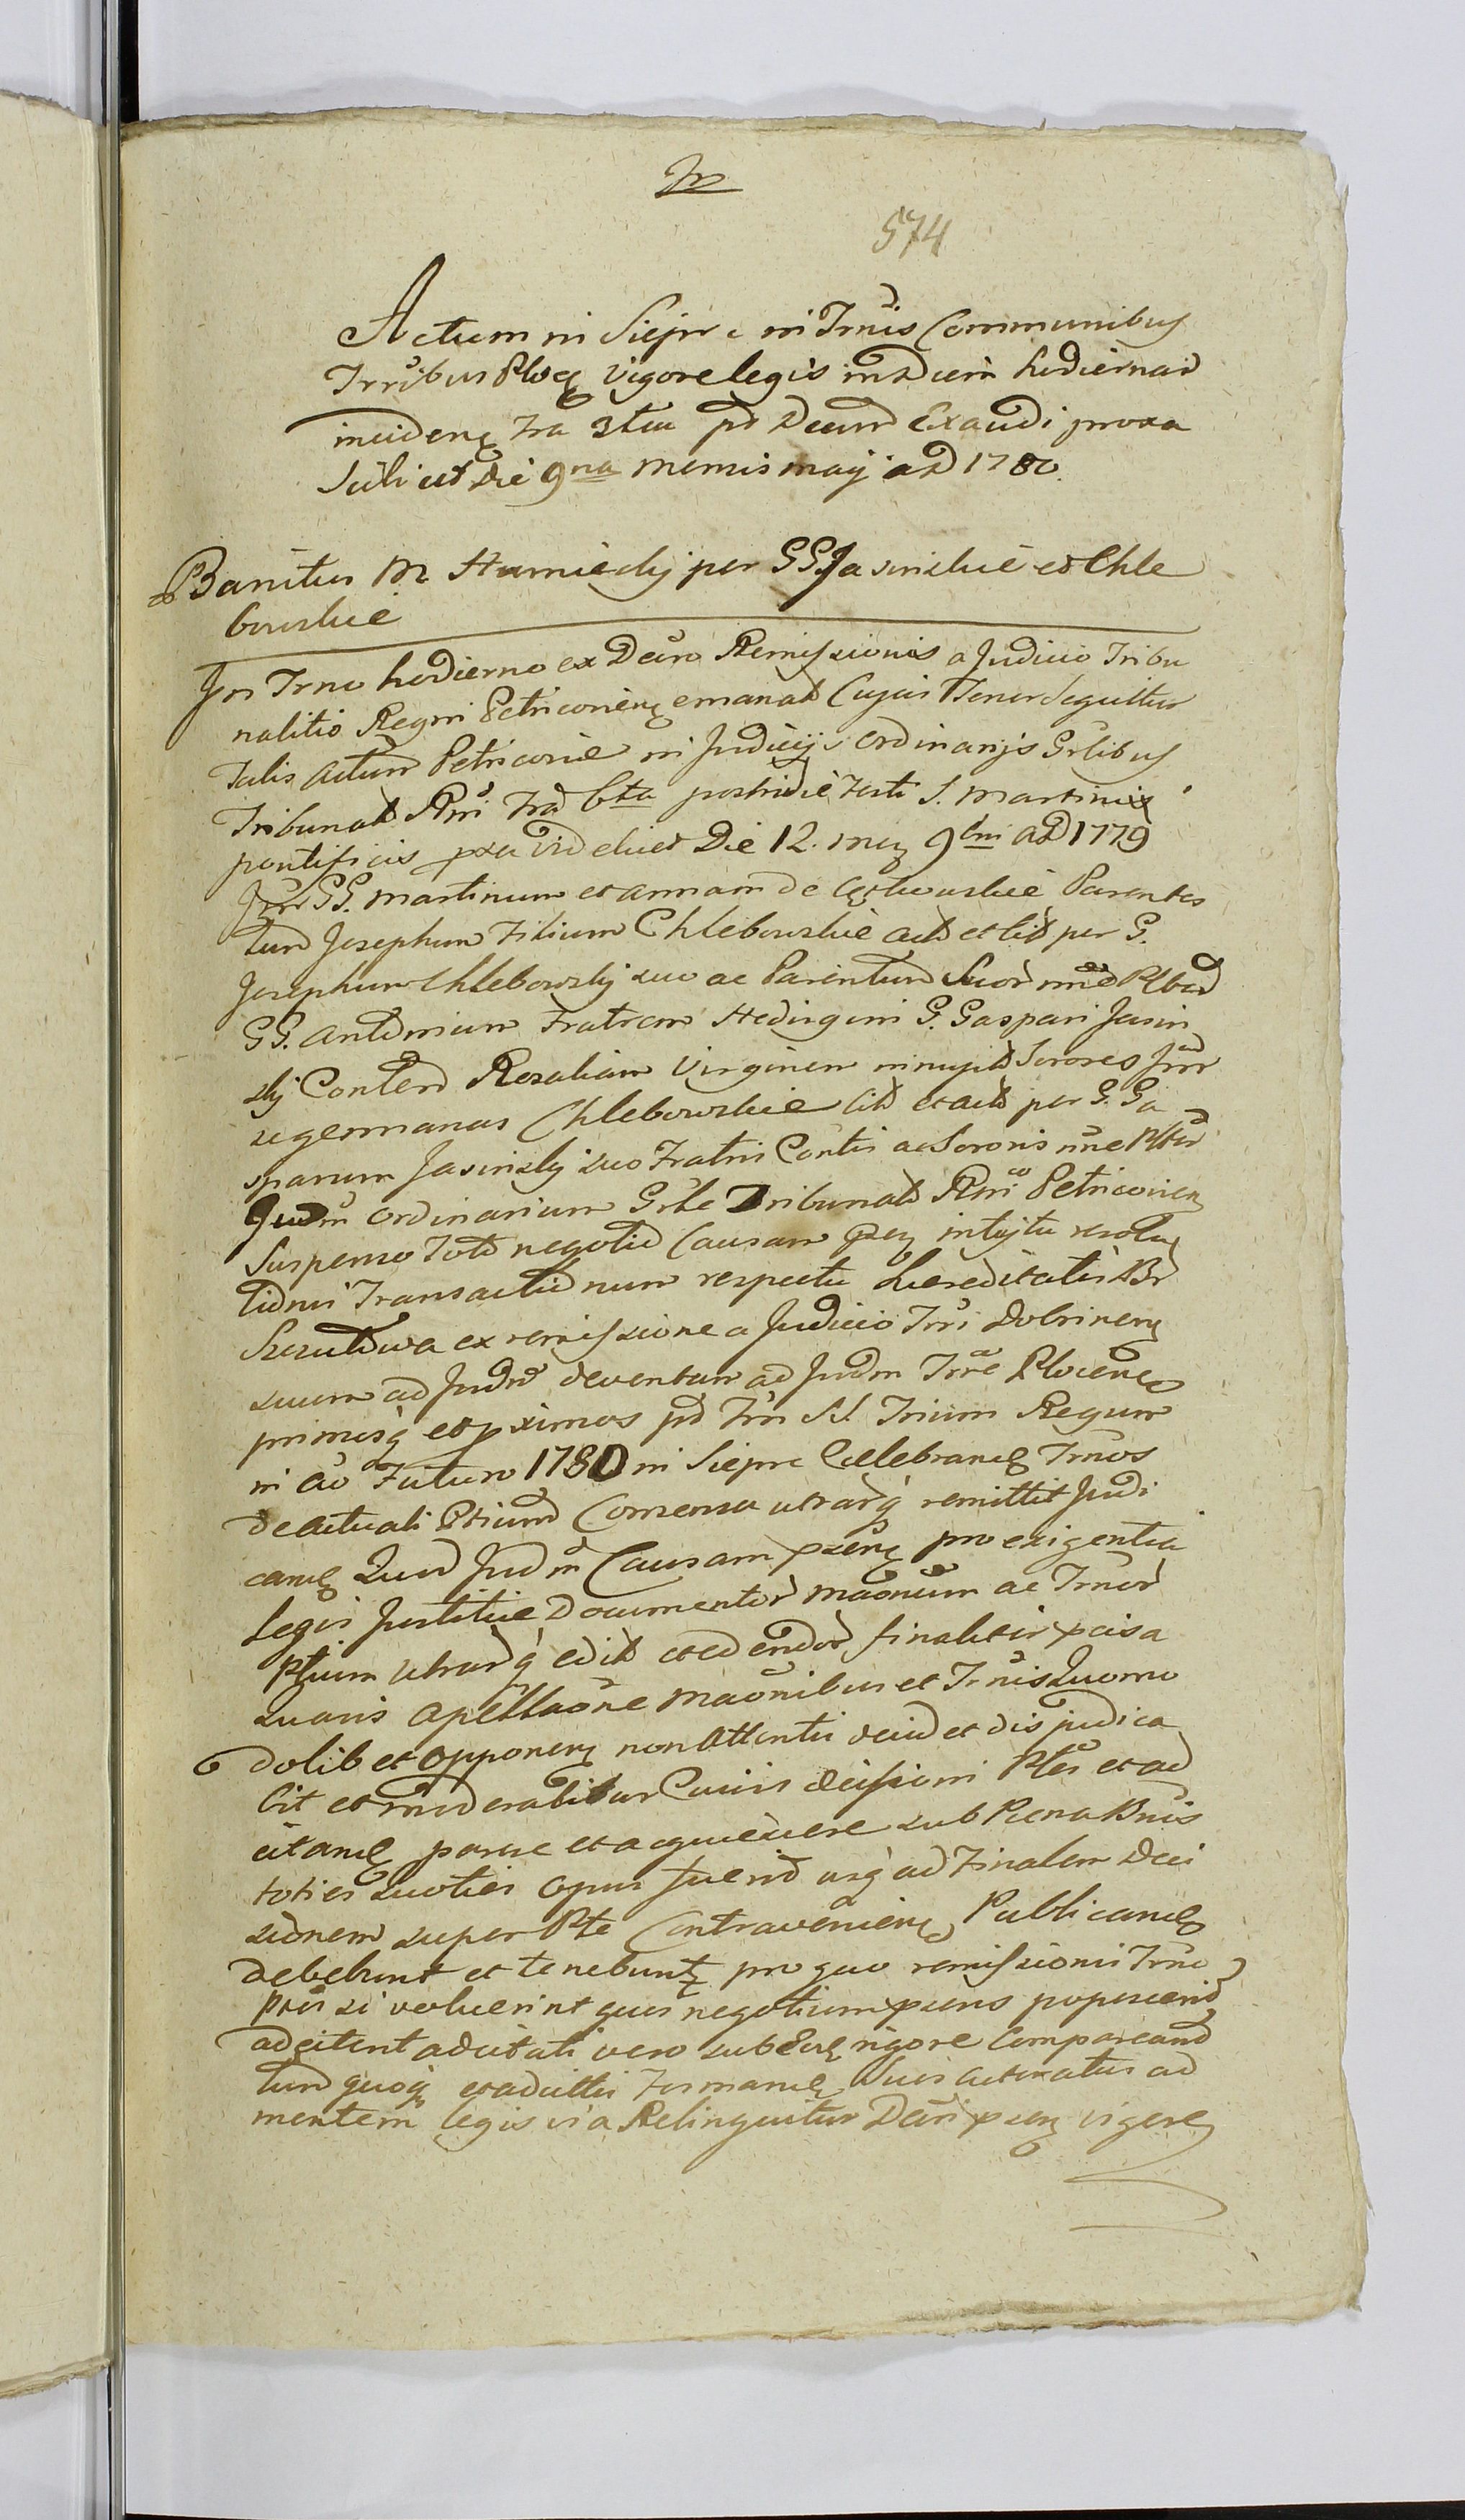 574
Actum in Siepre in Trnis Communibus
Trribus Ploc Vigore legis in Diem hodiernam
inciden Fra 3tia pt Dcam Exaudi proxa
scilicet Die 9na mensis maij aD 1780.
Banitus M Humiecky per GG Jasinskie et Chle
bowskie
Jn Trno hodierno ex Decro Remissionis a Judicio Tribu
nalitio Regni Petriconien emanat Cujus Tenor Sequitur
Talis Actum Petricovie in Judicijs Ordinarijs Grlibus
Tribunal Rni Fra 6ta postridie Festi S. Martini
pontificis pxa videlicet Die 12. men 9bri AD 1779
Jnr GG. Martinum et Annam de Parentes
tum Josephum Filium Chlebowskie act et cit per G.
Josephum Chlebowsky suo ac Parentum Suor nne
GG. Antonium Fratrem Hedvigim G. Gaspari Jasin
sky Contem Rosaliam Virginem innupt Sorores Jnr
se germanas Chlebowskie cit et act per G. Ga
sparum Jasinsky suo Fratris Contis ac Sororis nne
Judm Ordinarium Grle Tribunal Rni Petriconien
Suspenso Toto negotio Causam pen intuitu resolu
tionis Transactionum respectu haereditatis Br
Szczutowa ex remissione a Judicio Trri Dobrinen
suum ad Judm deventam ad Judm Trre Plocen
primosq et pximos pt Fm SS. Trium Regum
in Ao Futuro 1780 in Siepre Celebrand Trnos
de actuali Ptium Consensu utrarq remittit Judi
cand Quod Judm Causam pxen pro exigentia
Legis Justitiae Documentor maonum ac Trnor
Ptium utrarq edit et edendor finaliter pcisa
quavis Apellaone maonibus et Trnis quomo
dolibet Opponen non Attentis decid et disjudica
bit et moderabitur Cuius decisioni Ptes et ad
citand parere et acquiescere sub Poena Bnis
toties quoties Opus fuerit usq ad Finalem Deci
sionem super Pte Contravenien Publicand
debebunt et tenebunt pro quo remissionis Trno
Ptes si voluerint quos negotium pxens poposcerit
adcitent adcitati vero sub eod rigore Compareant
tum quoq et adcitis Formand Juris Actoratus ad
mentem legis via Relinquitur Decri pxen vigore